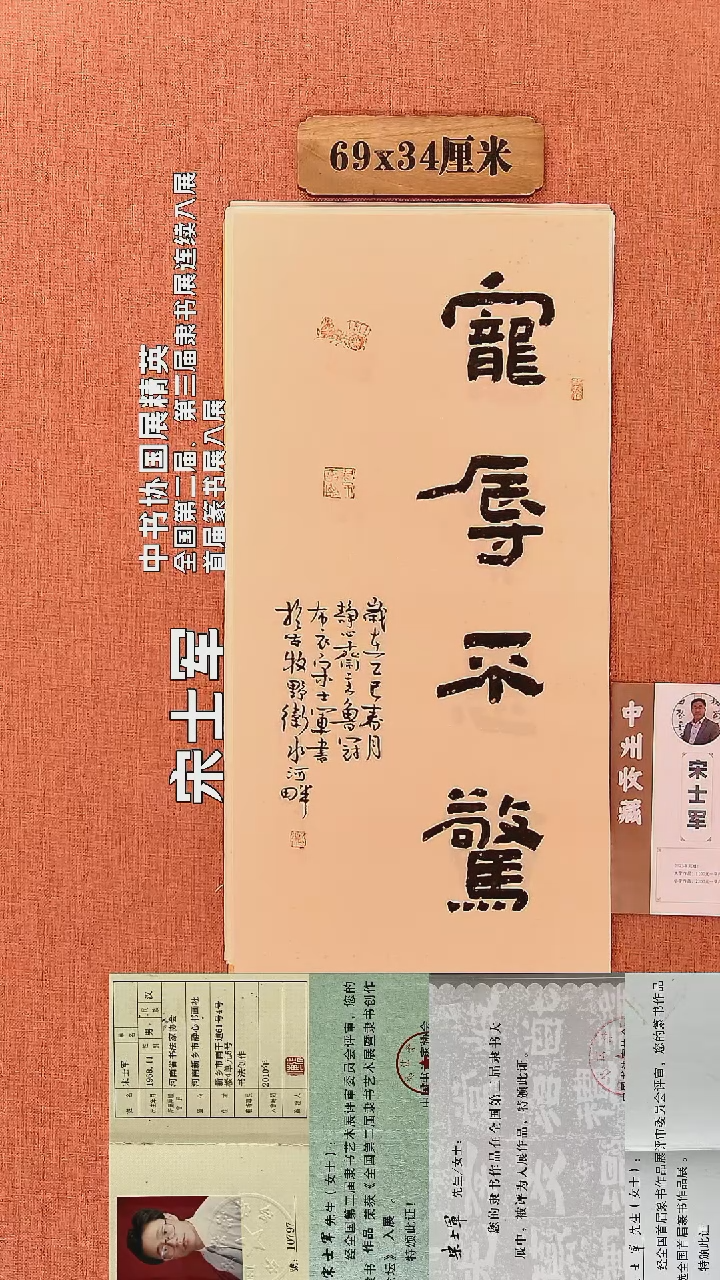 69x34厘米
中书协国展精英
全国第二届、第三届隶书展连续入展
首届篆书展入展
宋士军
寵辱不驚
歲在乙巳春月
靜心齋主魯冠
布衣宋士軍書
於古牧野衛水河畔
中州收藏
宋士军
宋士军
1968.11
男
汉
河南省书法家协会
河南新乡市静心书画社
书法创作
2010年
宋士军 先生（女士）：
经全国第二届隶书艺术展评审委员会评审，您的
隶书 作品 荣获《全国第二届隶书艺术展暨隶书创作
论坛》 入展
特颁此证！
宋士军 先生/女士：
您的隶书作品在全国第三届隶书大
展中，被评为入展作品，特颁此证。
士军 先生（女士）：
经全国首届篆书作品展评审委员会评审，您的篆书作品
全国首届篆书作品展。
特颁此证